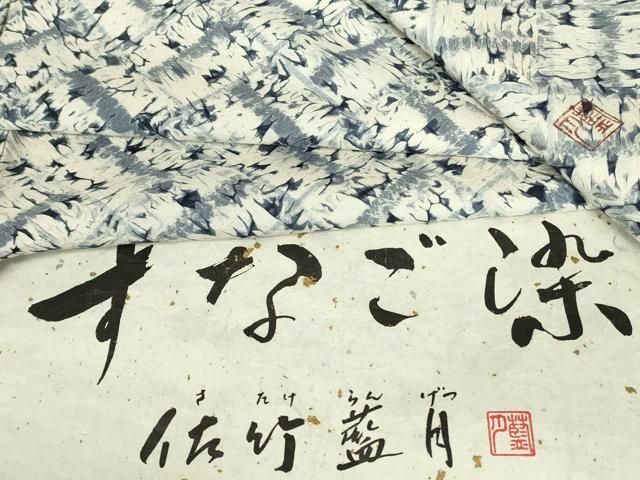 すなご染
さたけらんげつ
佐竹藍月